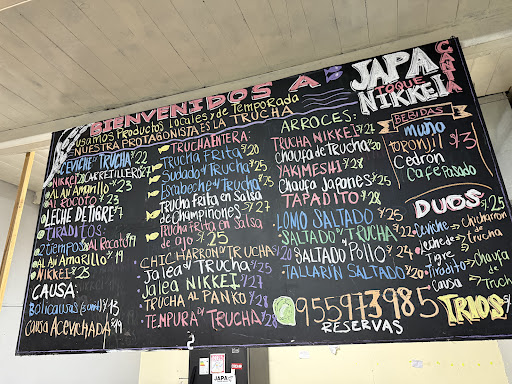 BIENVENIDOS A
JAPA
TOQUE
NIKKEI
CAUTA
Usamos Productos Locales y de Temporada
NUESTRA PROTAGONISTA ES LA TRUCHA
CEVICHE TRUCHA 22
NIKKEI
CARRETILLERO S/27
AL Ají Amarillo S/23
Al Rocoto S/23
LECHE DE TIGRE S/7
TIRADITOS:
2 tiempos Al Rocoto S/19
AL Ají Amarillo S/19
NIKKEI S/25
CAUSA:
Bolicausas (5unid) S/13
Causa Acevichada S/19
TRUCHA ENTERA:
Trucha Frita S/20
Sudado Trucha S/25
Escabeche Trucha S/25
Trucha Frita en Salsa
de Champiñones S/27
Trucha Frita en Salsa
de ajo S/25
CHICHARRON TRUCHA S/25
Jalea Trucha S/25
Jalea NIKKEI S/27
TRUCHA AL PANKO S/28
TEMPURA TRUCHA S/28
ARROCES:
TRUCHA NIKKEI S/27
Chaufa de Trucha S/20
YAKIMESHI S/28
Chaufa Japones S/25
TAPADITO S/28
LOMO SALTADO S/25
SALTADO TRUCHA S/22
SALTADO Pollo S/24
TALLARIN SALTADO S/20
955973985
RESERVAS
BEBIDAS
Muño
toronjil S/3
Cedrón
Cafe Pasado
DUOS S/25
Ceviche → Chicharron
Leche de → de Trucha
Tigre
Tiradito → Chaufa de
Causa → Trucha
TRIOS
JAPA